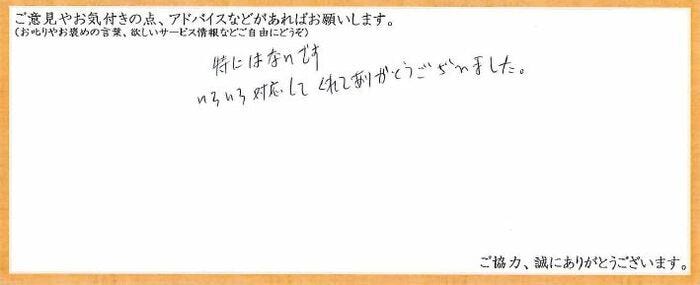 ご意見やお気付きの点、アドバイスなどがあればお願いします。
(お叱りやお褒めの言葉、欲しいサービス情報などご自由にどうぞ)
特にはないです
いろいろ対応してくれてありがとうございました。
ご協力、誠にありがとうございます。